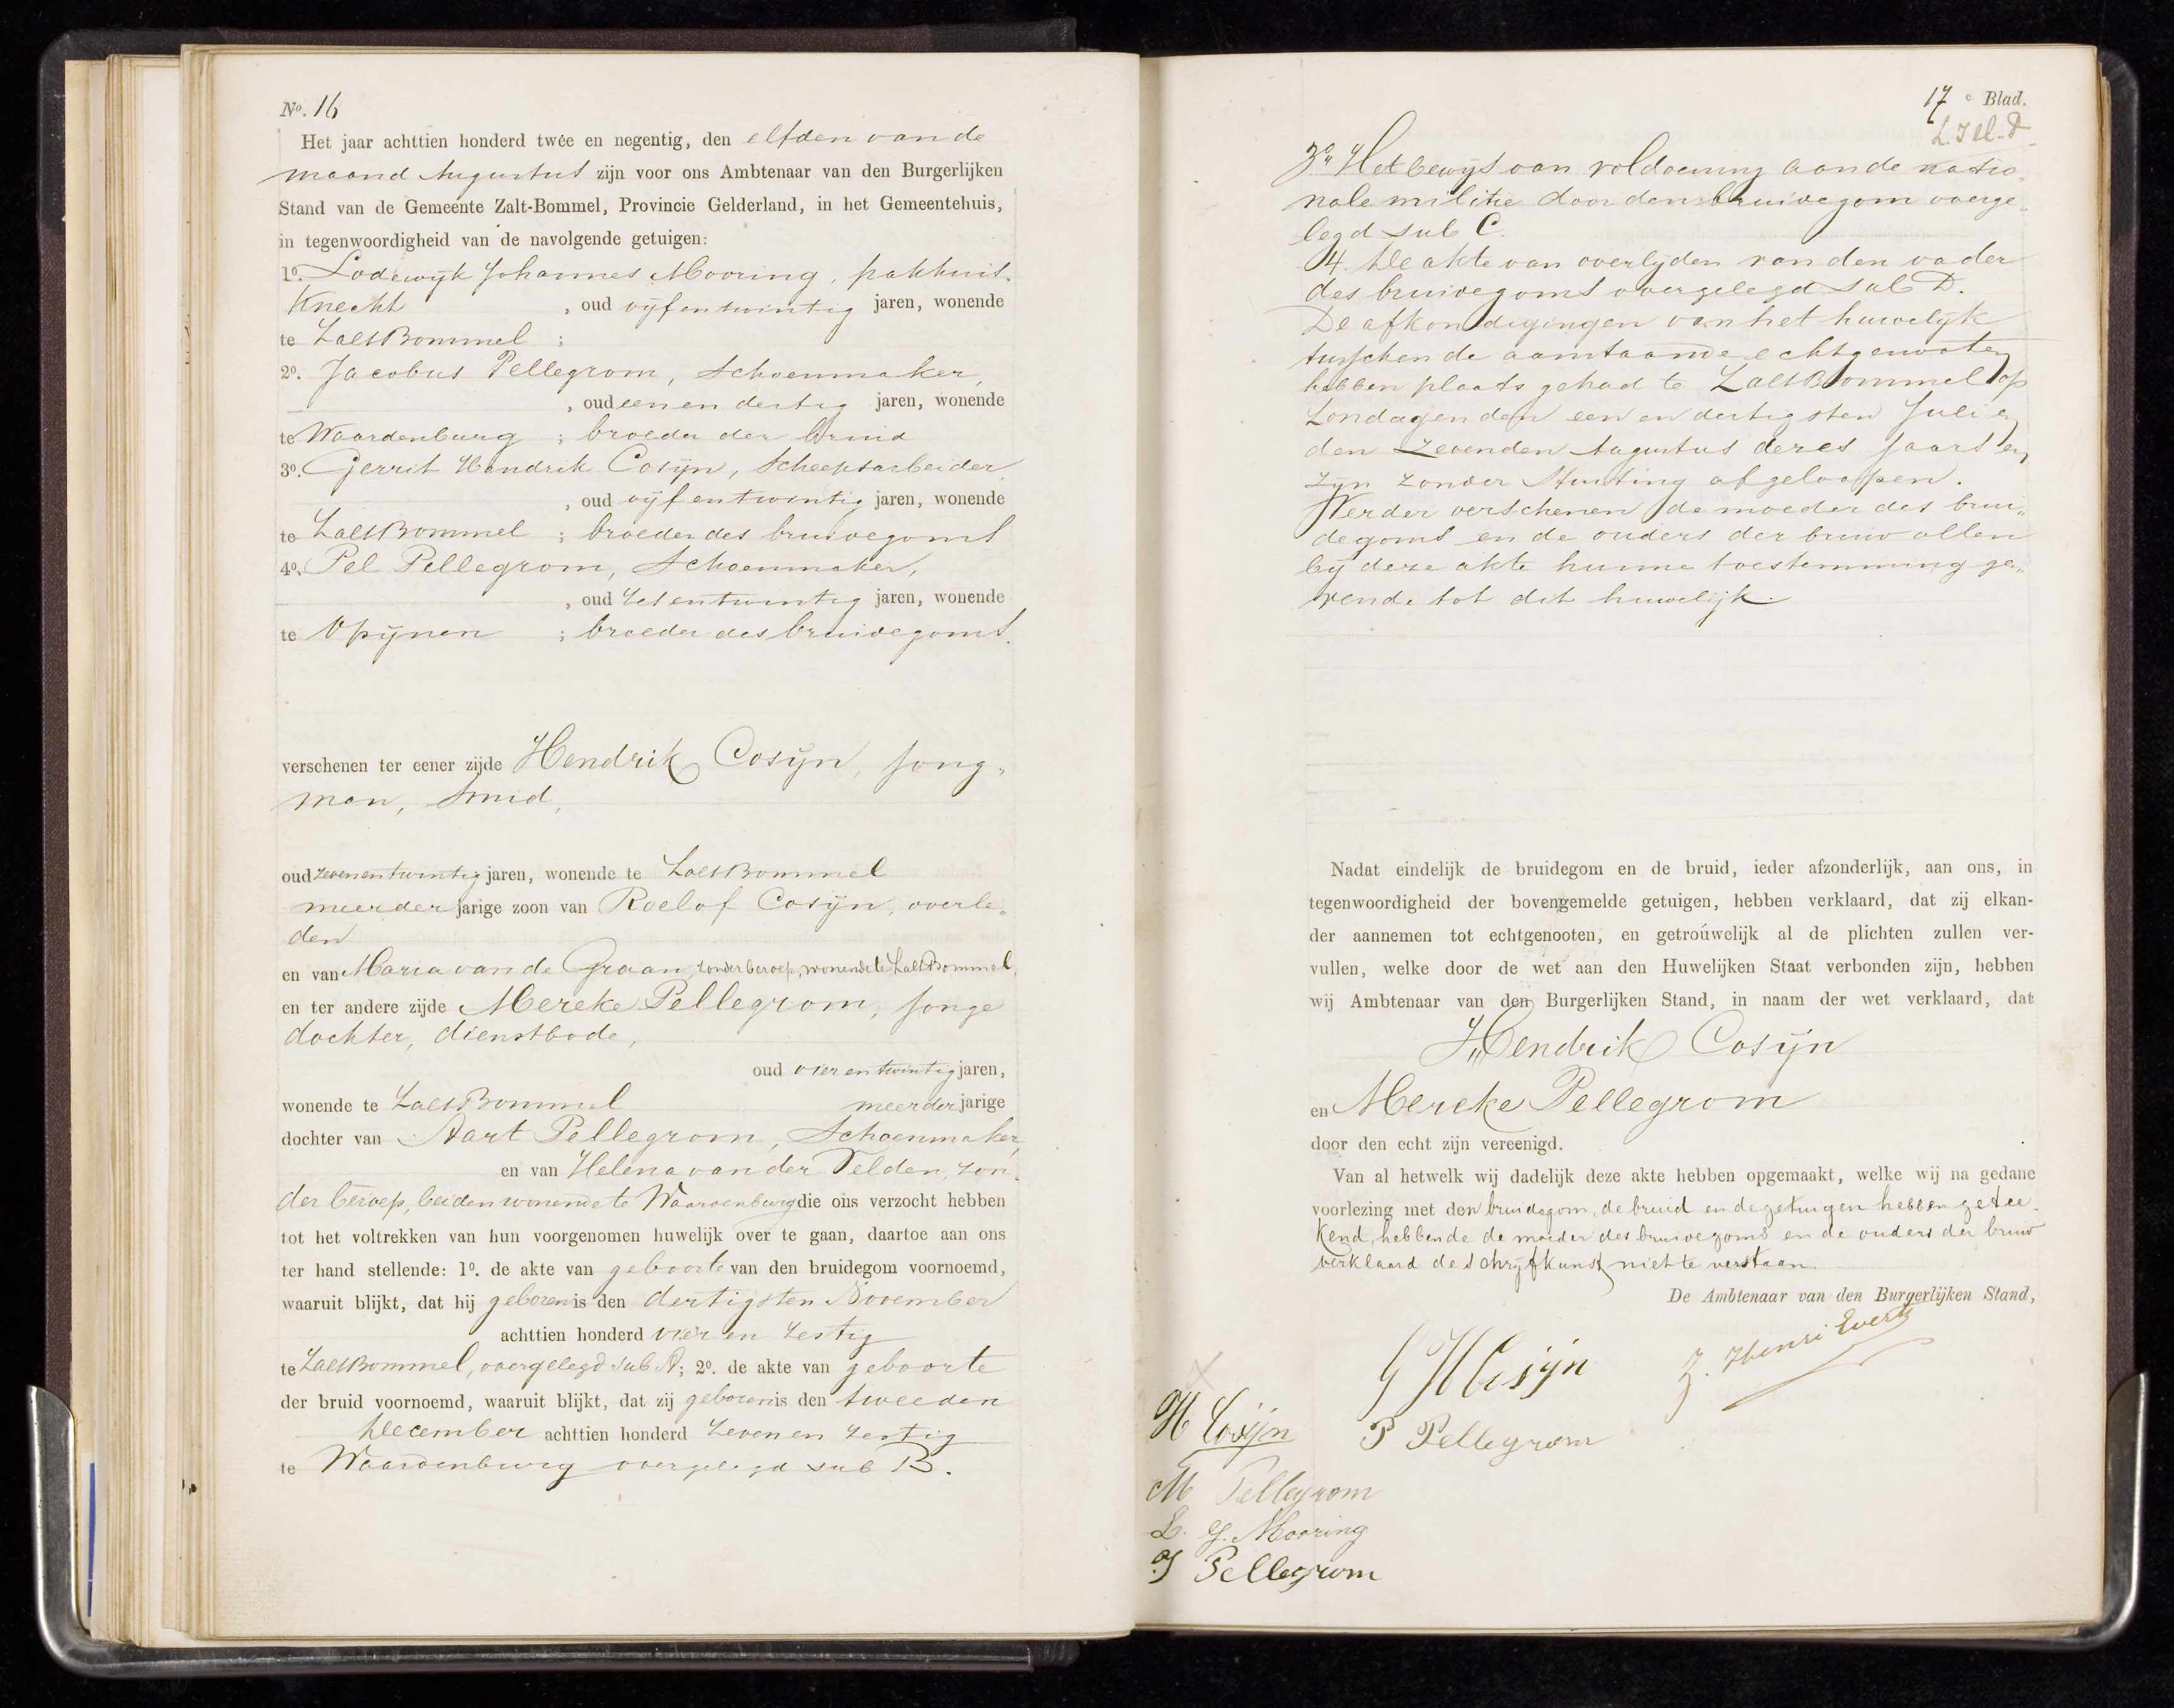 No. 16
Het jaar achttien honderd twee en negentig, den elfden van de
maand Augustus zijn voor ons Ambtenaar van den Burgerlijken
Stand van de Gemeente Zalt-Bommel, Provincie Gelderland, in het Gemeentehuis,
in tegenwoordigheid van de navolgende getuigen:
1o. Lodewijk Johannes Mooring, pakhuis-
knecht, oud vijfentwintig jaren, wonende
te ZaltBommel ;
2o. Jacobus Pellegrom, Schoenmaker,
, oud een en dertig jaren, wonende
te Waardenburg ; broeder der bruid
3o. Gerrit Hendrik Cosijn, Scheepsarbeider
, oud vijfentwintig jaren, wonende
te ZaltBommel ; broeder des bruidegoms
4o. Pel Pellegrom, Schoenmaker,
, oud zesentwintig jaren, wonende
te Opijnen ; broeder des bruidegoms.
verschenen ter eener zijde Hendrik Cosijn, jong„
man, Smid,
oud zevenentwintig jaren, wonende te ZaltBommel
meerderjarige zoon van Roelof Cosijn, overle„
den
en van Maria van de Graan, zonder beroep, wonende te ZaltBommel,
en ter andere zijde Mereke Pellegrom, jonge
dochter, dienstbode,
oud vierentwintig jaren,
wonende te ZaltBommel meerderjarige
dochter van Aart Pellegrom, Schoenmaker
en van Helena van der Velden, zon-
der beroep, beiden wonende te Waardenburg die ons verzocht hebben
tot het voltrekken van hun voorgenomen huwelijk over te gaan, daartoe aan ons
ter hand stellende: 1o. de akte van geboorte van den bruidegom voornoemd,
waaruit blijkt, dat hij geboren is den dertigsten November
achttien honderd vier en zestig
te ZaltBommel, overgelegd sub A; 2o. de akte van geboorte
der bruid voornoemd, waaruit blijkt, dat zij geboren is den tweeden
December achttien honderd zeven en zestig
te Waardenburg overgelegd sub B.
17e Blad.
3o. Het bewijs van voldoening aan de natio„
nale militie door den bruidegom overge„
legd sub C.
4. De akte van overlijden van den vader
des bruidegoms overgelegd sub D.
De afkondigingen van het huwelijk
tusschen de aanstaande echtgenooten
hebben plaats gehad te ZaltBommel op
Zondagen den een en dertigsten Juli en
den zevenden Augustus dezes jaars en
zijn zonder stuiting afgeloopen.
Verder verschenen de moeder des brui„
degoms en de ouders der bruid allen
bij deze akte hunne toestemming ge„
vende tot dit huwelijk.
Nadat eindelijk de bruidegom en de bruid, ieder afzonderlijk, aan ons, in
tegenwoordigheid der bovengemelde getuigen, hebben verklaard, dat zij elkan-
der aannemen tot echtgenooten, en getrouwelijk al de plichten zullen ver-
vullen, welke door de wet aan den Huwelijken Staat verbonden zijn, hebben
wij Ambtenaar van den Burgerlijken Stand, in naam der wet verklaard, dat
Hendrik Cosijn
en Mereke Pellegrom
door den echt zijn vereenigd.
Van al hetwelk wij dadelijk deze akte hebben opgemaakt, welke wij na gedane
voorlezing met den bruidegom, de bruid en de getuigen hebben getee-
kend, hebbende de moeder des bruidegoms en de ouders der bruid
verklaard de schrijfkunst niet te verstaan.
De Ambtenaar van den Burgerlijken Stand,
G H Cosijn
H Cosijn
P Pellegrom
M Pellegrom
L. J. Mooring
J Pellegrom